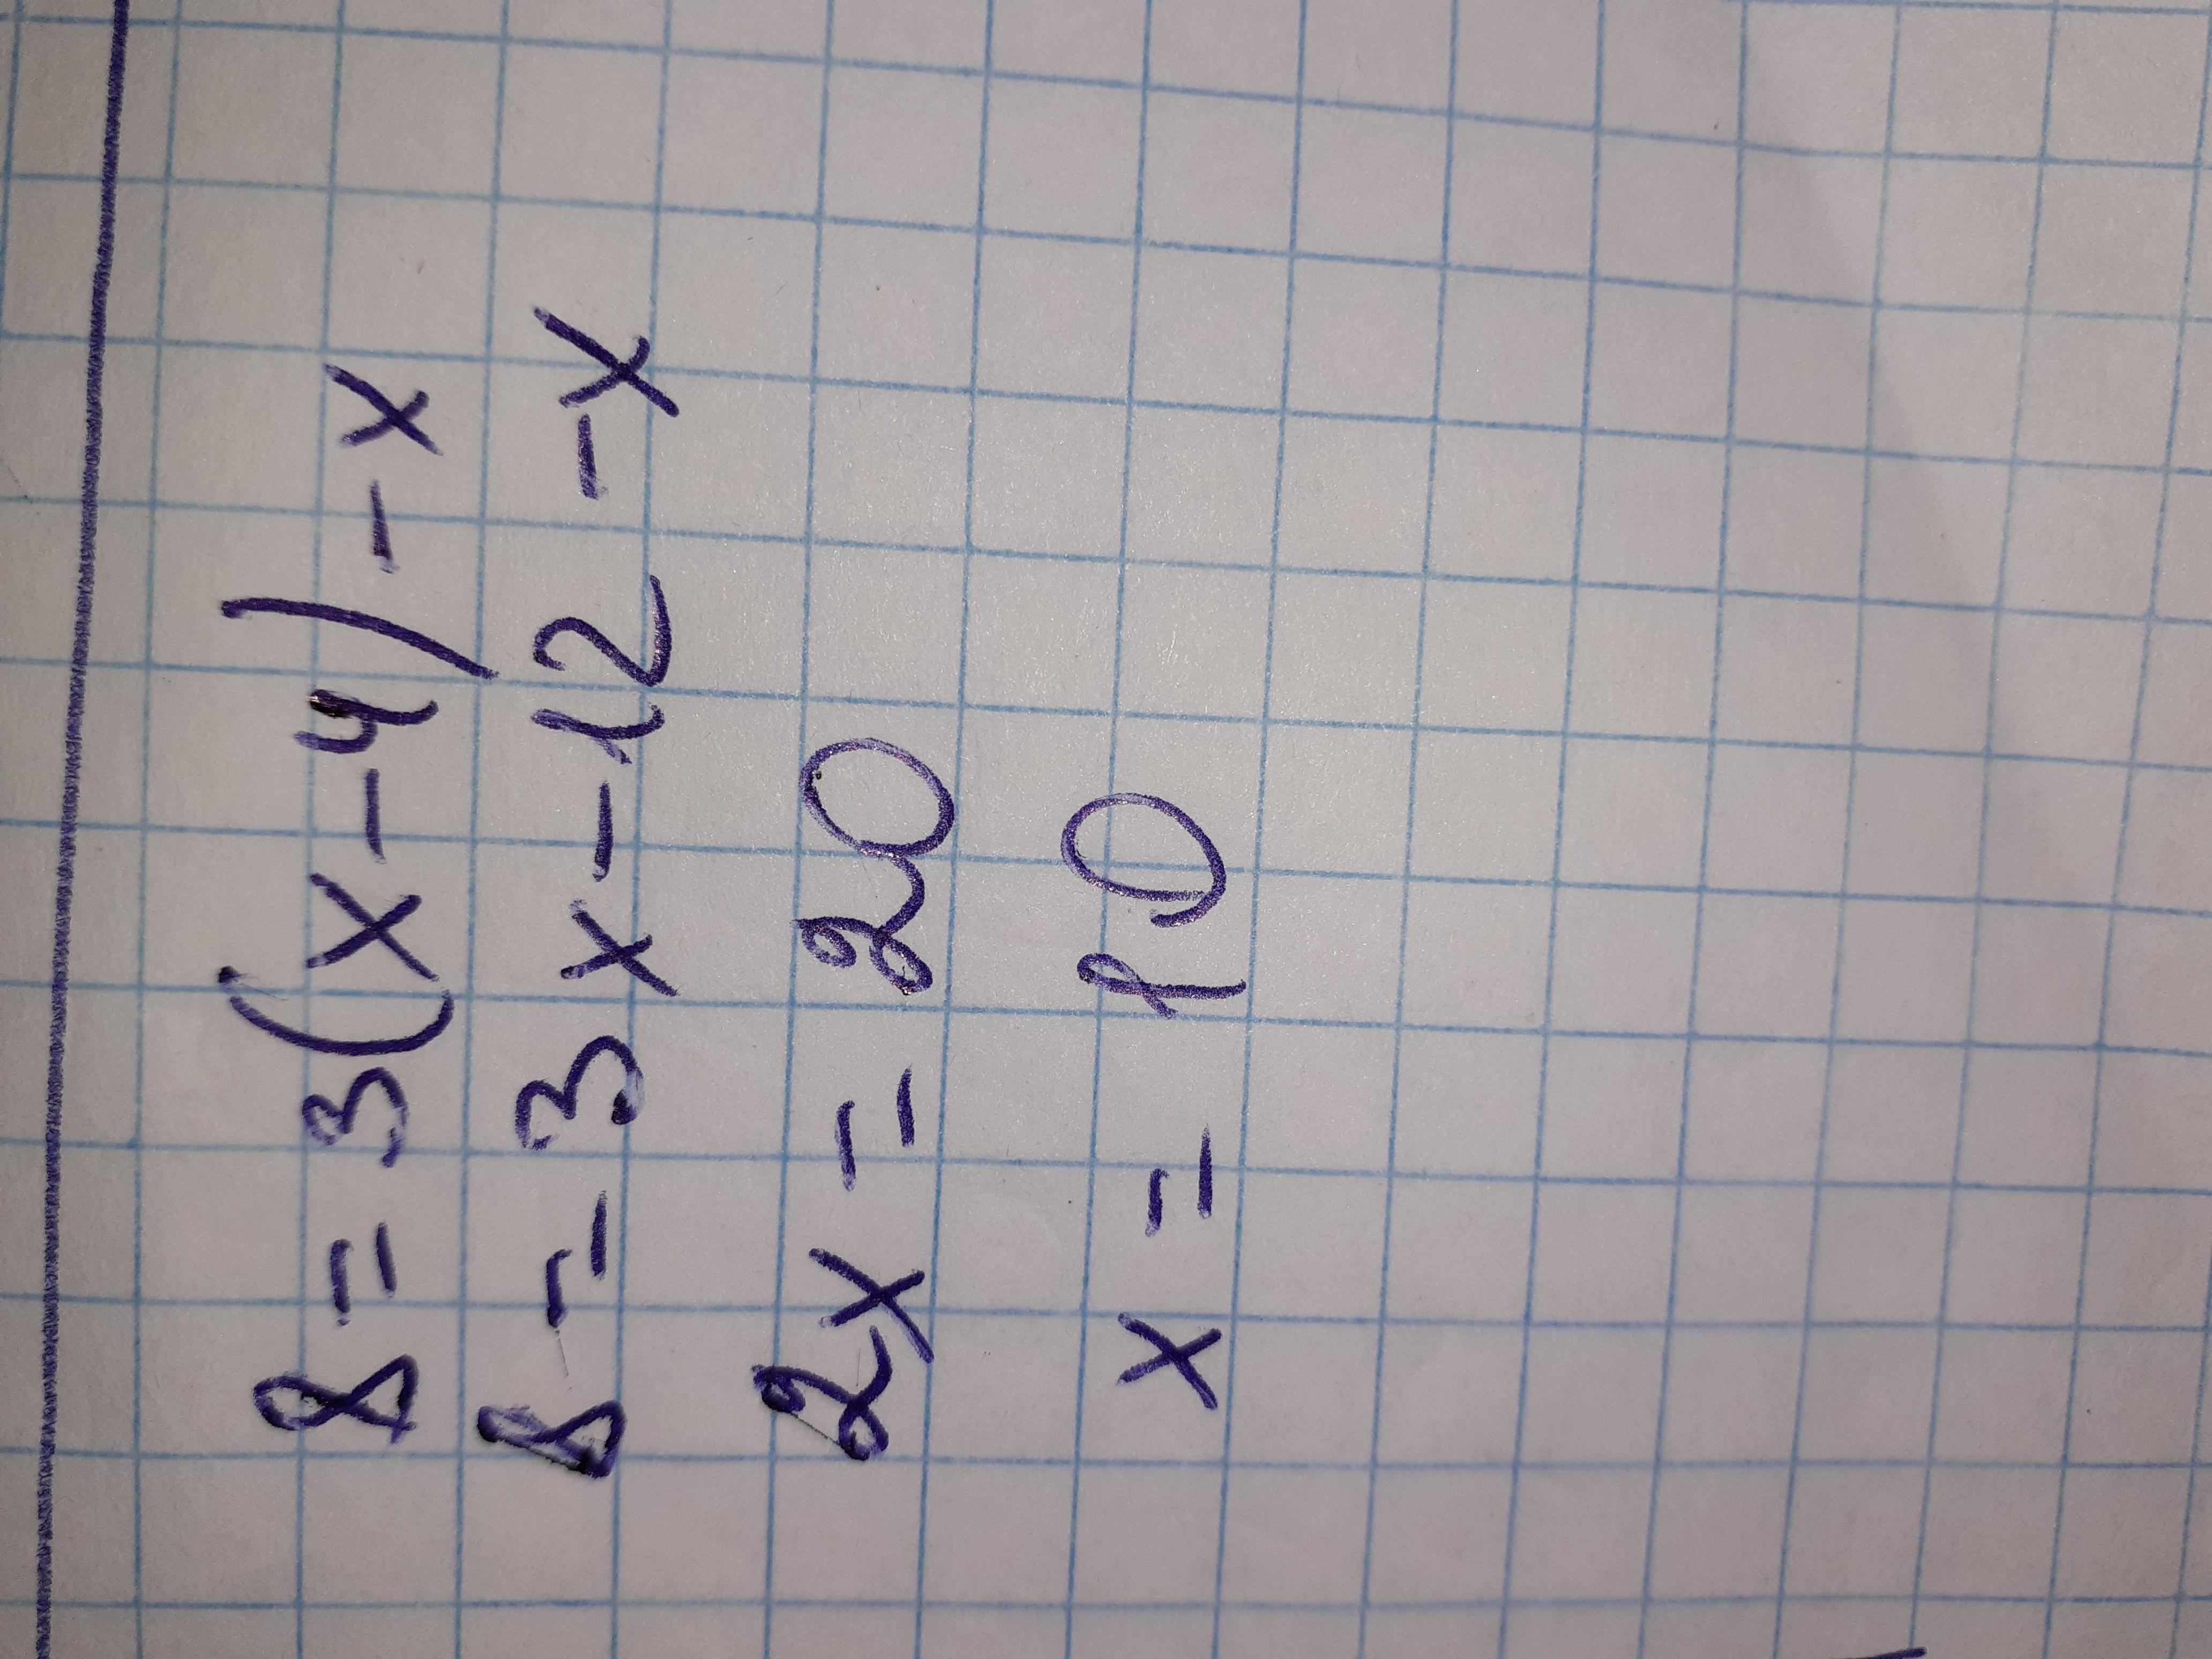 8 = 3(x-4) - x
8 = 3x - 12 - x
2x = 20
x = 10